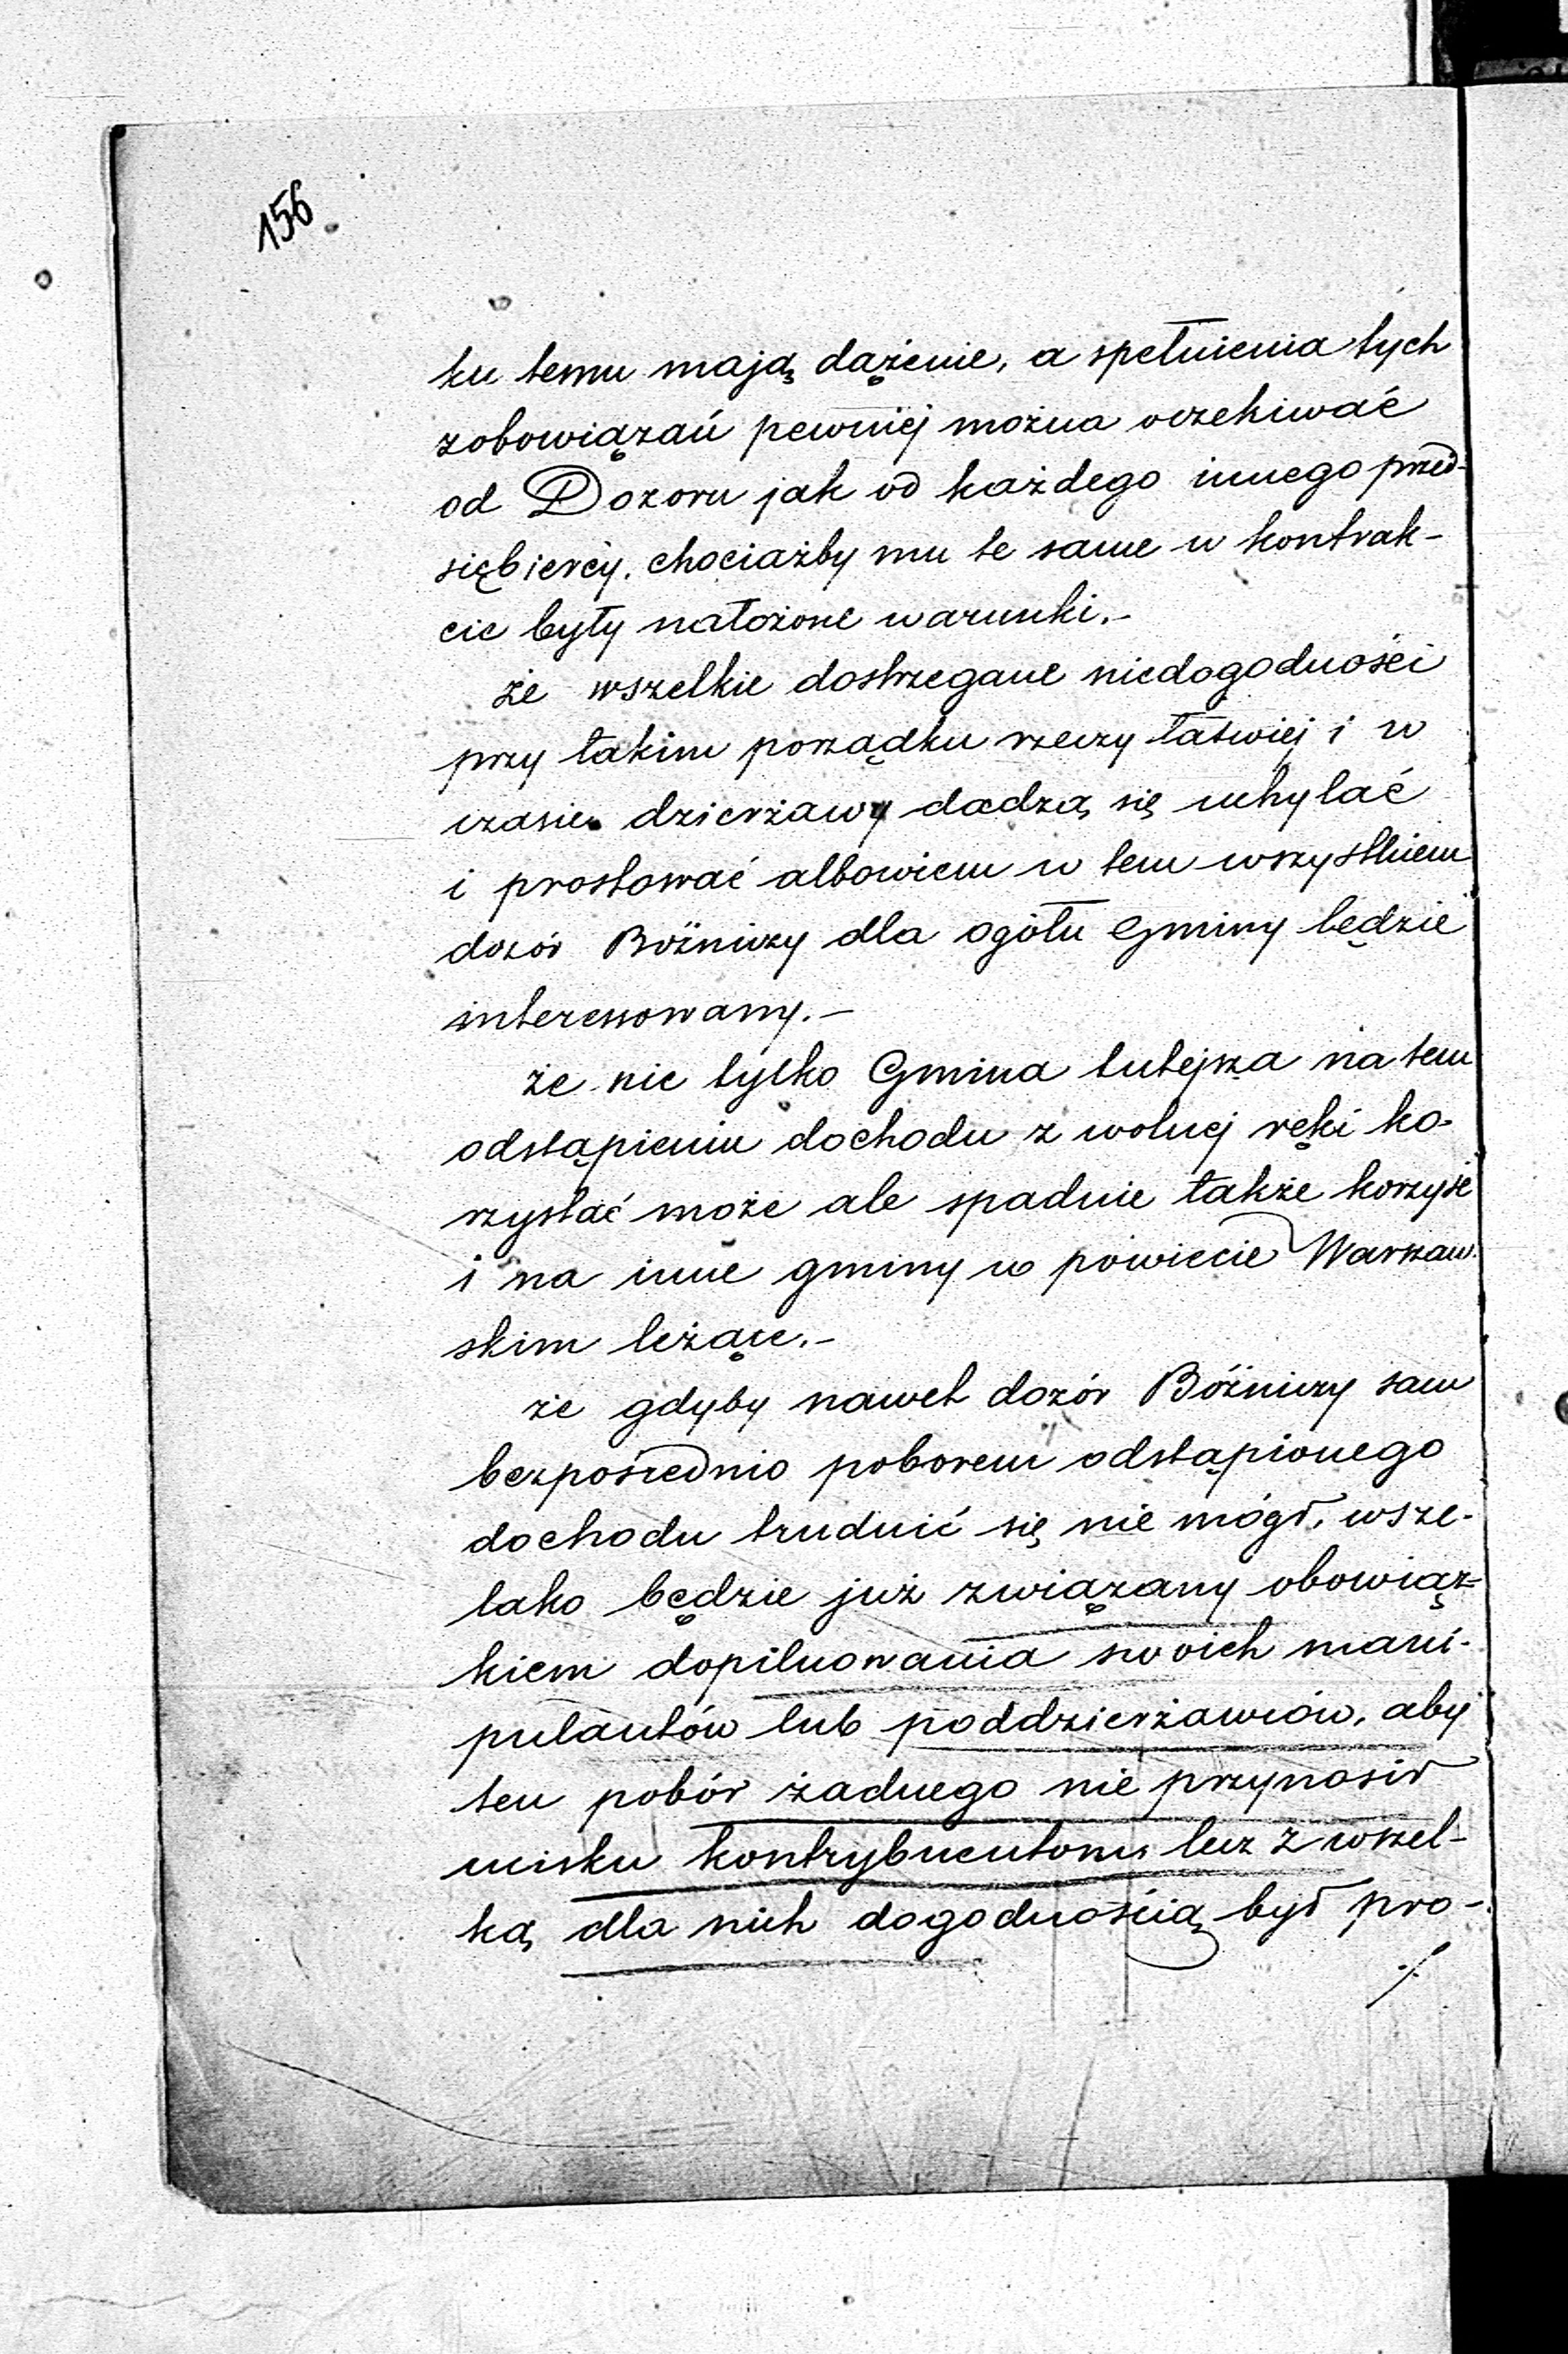 156
ku temu mają dążenie, a spełnienia tych
zobowiązań pewniej można oczekiwać
od Dozoru jak od każdego innego przed-
siębiercy, chociażby mu te same w kontrak-
cie były nałożone warunki.-
że wszelkie dostrzegane niedogodności
przy takim porządku rzeczy łatwiej i w
czasie dzierżawy dadzą się uchylać
i prostować albowiem w tem wszystkiem
dozór Bóżniczy dla ogółu Gminy będzie
interessowany.-
że nie tylko Gmina tutejsza na tem
odstąpieniu dochodu z wolnej ręki ko-
rzystać może ale spadnie także korzyść
i na inne gminy w powiecie Warszaw-
skim leżące.-
że gdyby nawet dozór Bóżniczy sam
bezpośrednio poborem odstąpionego
dochodu trudnić się nie mógł, wsze-
lako będzie już związany obowiąz-
kiem dopilnowania swoich mani-
pulantów lub poddzierżawców, aby
ten pobór żadnego nie przynosił
ucisku kontrybuentom, lecz z wszel-
ką dla nich dogodnością był pro-
./.